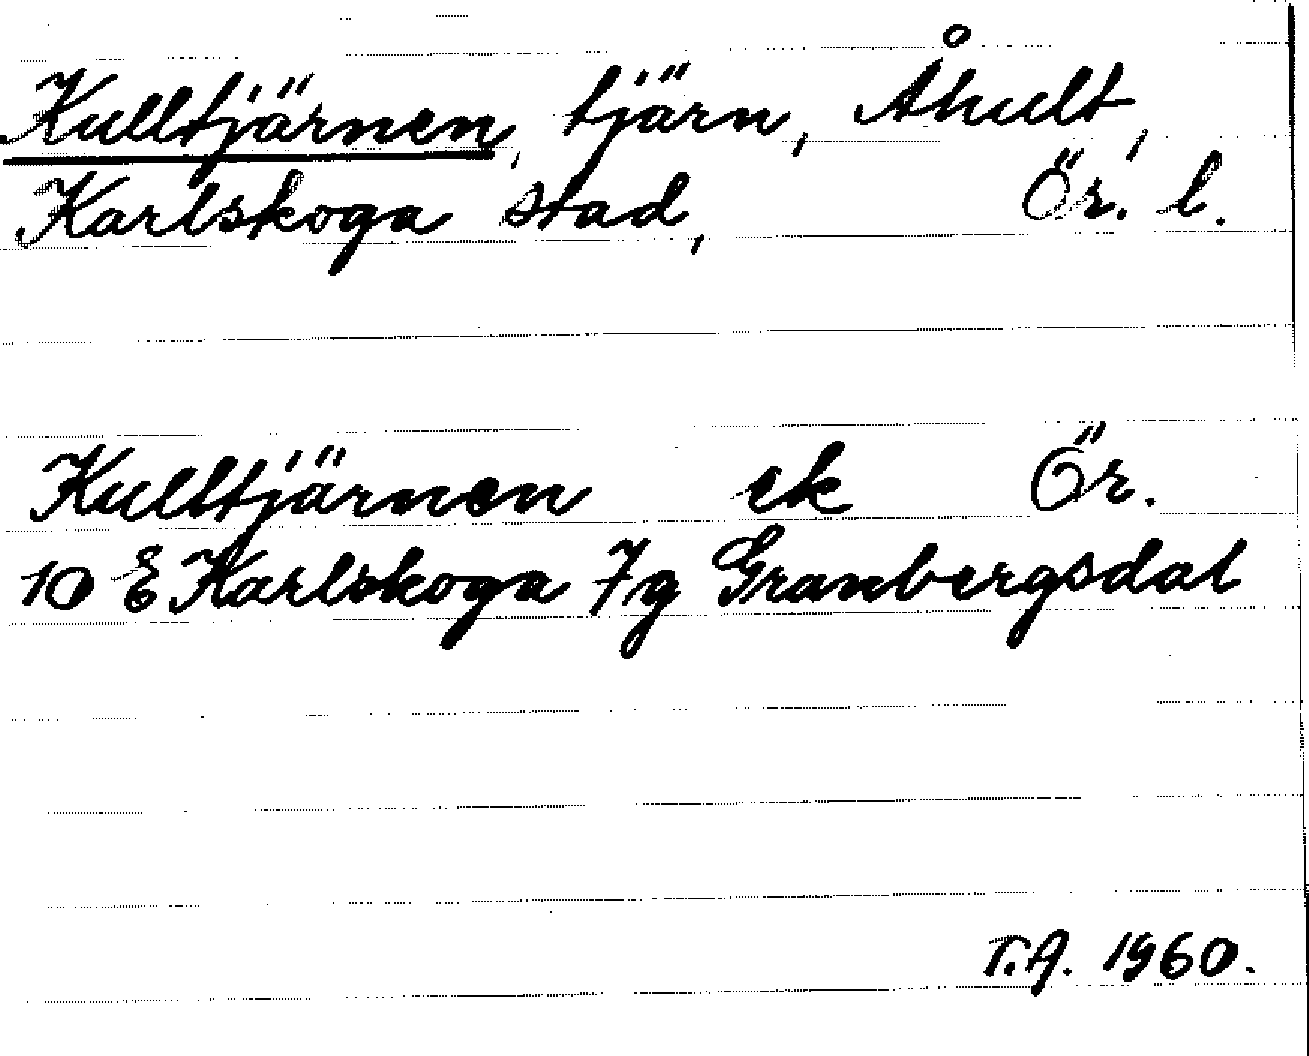 Kulltjärnen, tjärn, Åhult,
Karlskoga stad, Ör. l.
Kulltjärnen ek Ör.
10 E Karlskoga 7g Granbergsdal
T.A. 1960.